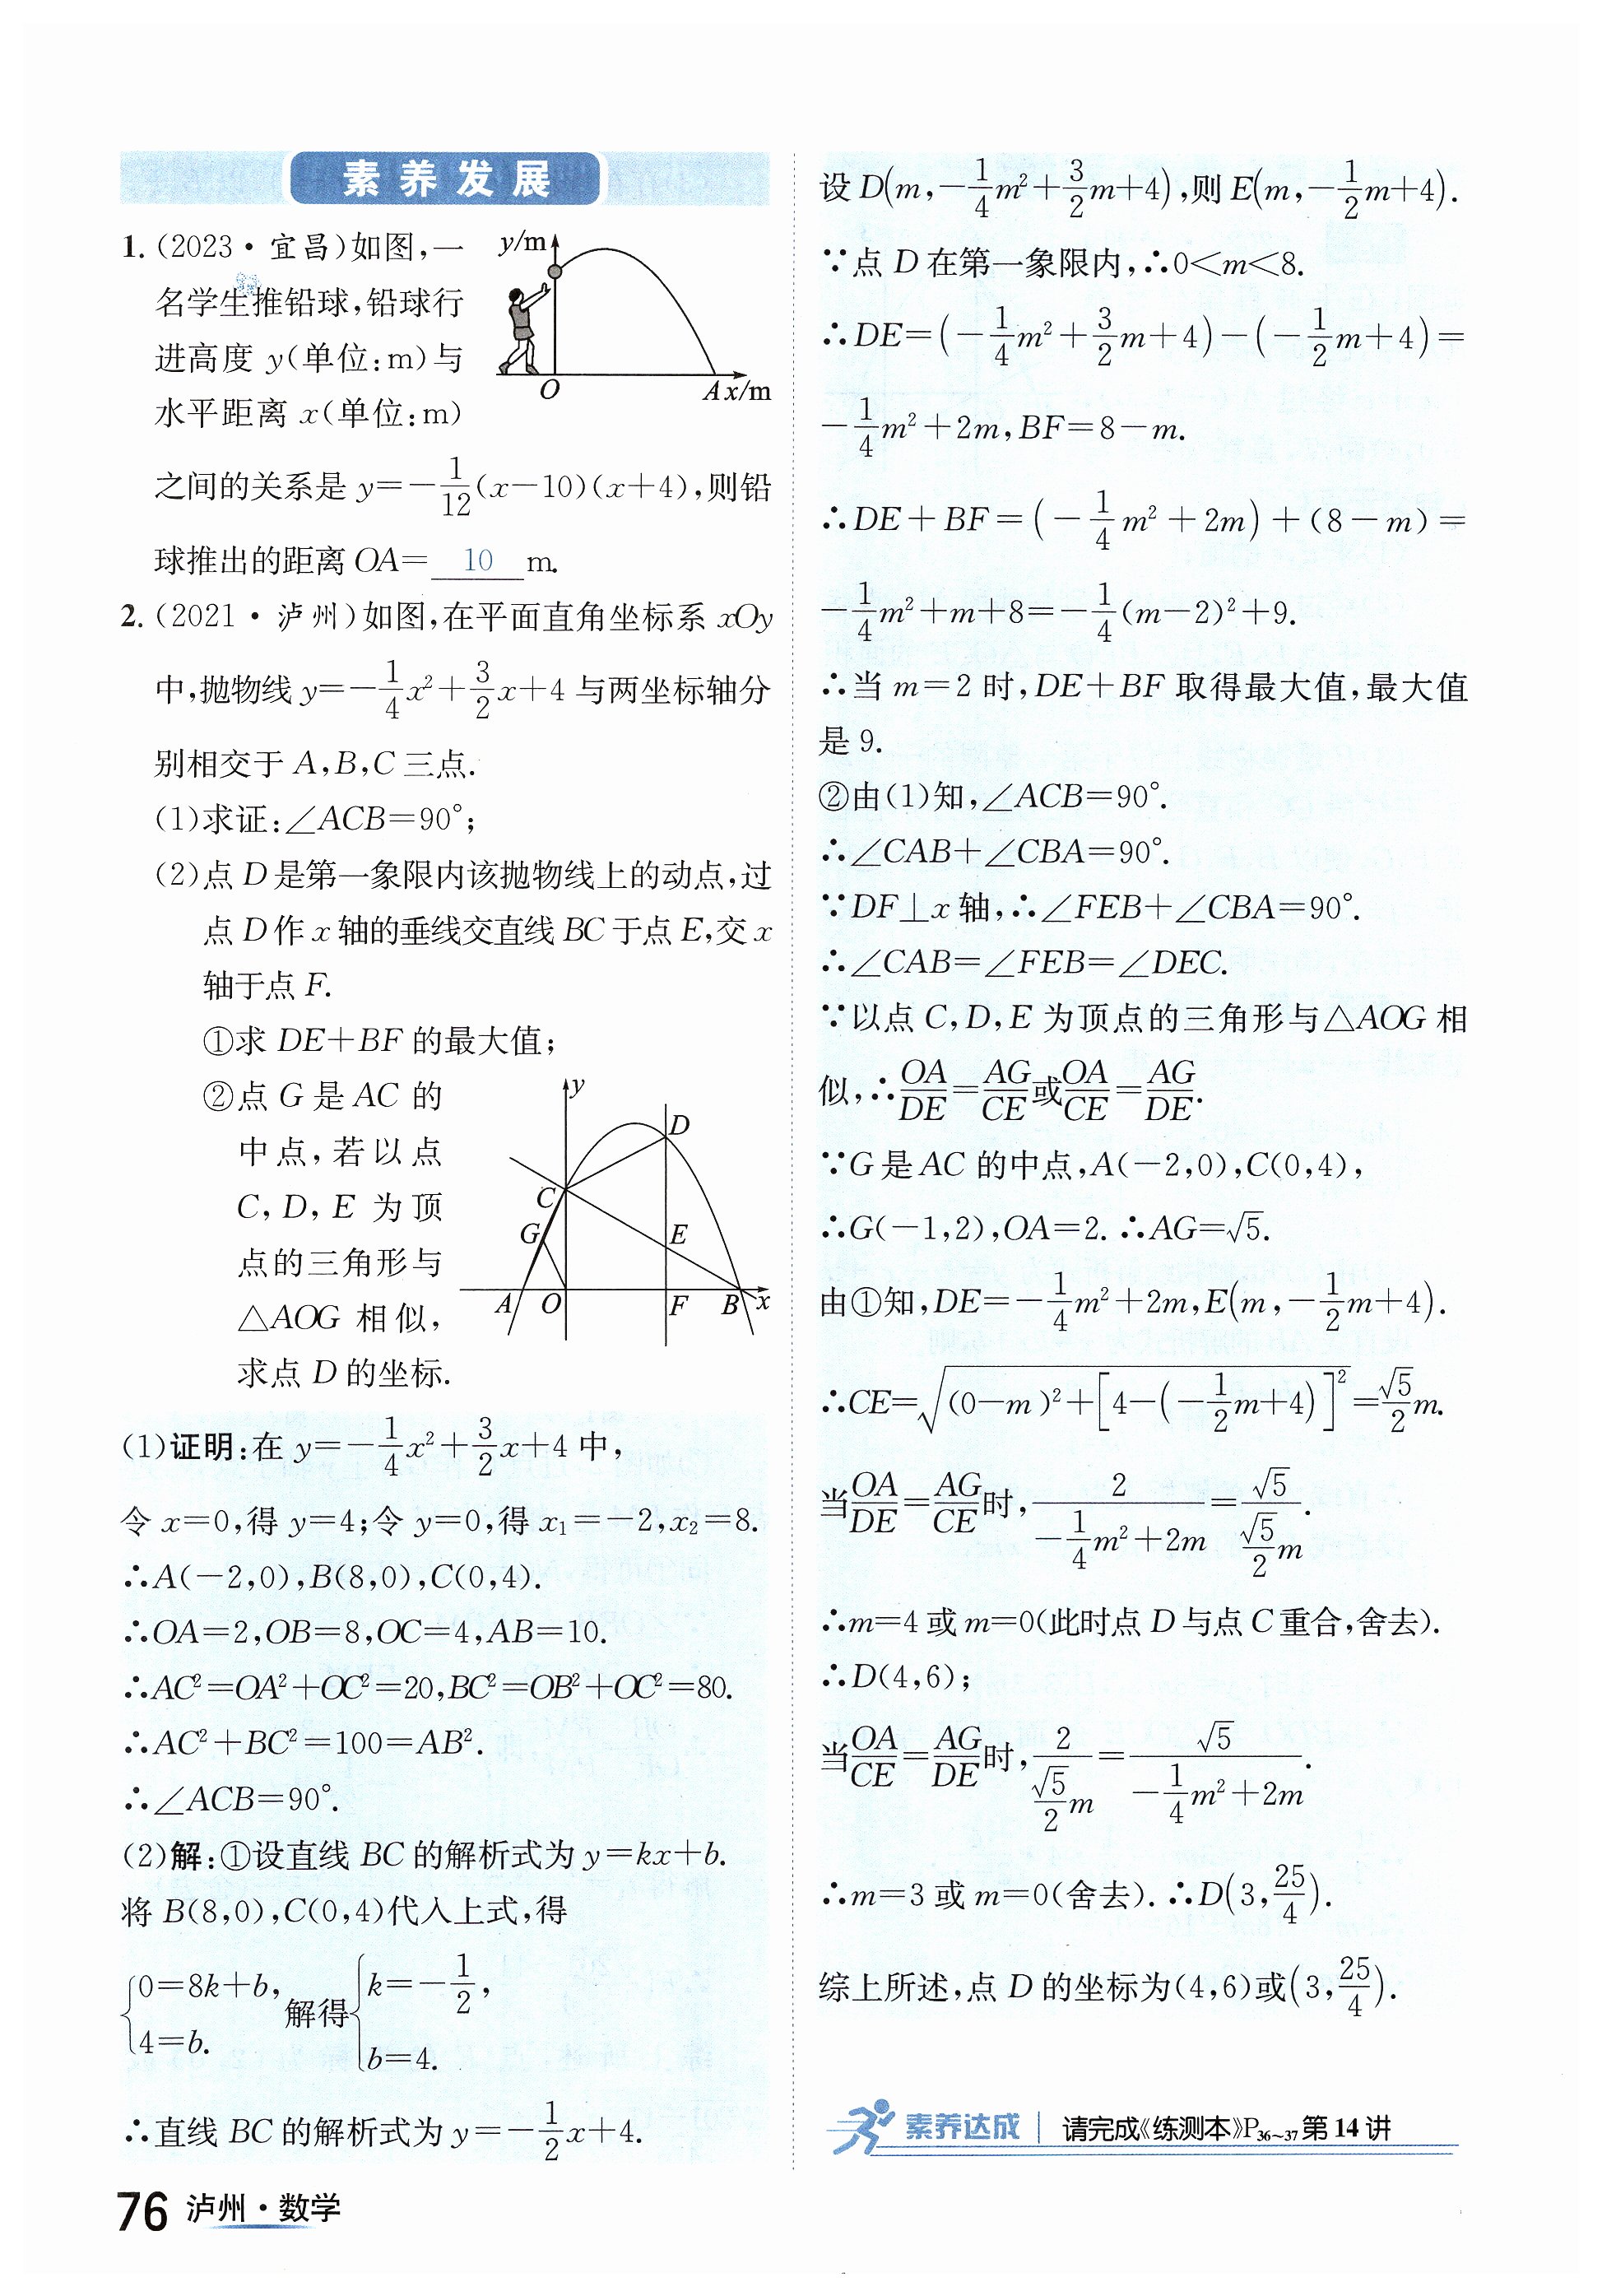 素养发展
1. (2023·宜昌)如图,一
名学生推铅球,铅球行
进高度 y(单位:m)与
水平距离 x(单位:m)
y/m
O
A x/m
之间的关系是 y=-1/12(x-10)(x+4),则铅
球推出的距离 OA= 10 m.
2. (2021·泸州)如图,在平面直角坐标系 xOy
中,抛物线 y=-1/4x²+3/2x+4 与两坐标轴分
别相交于 A,B,C 三点.
(1)求证:∠ACB=90°;
(2)点 D 是第一象限内该抛物线上的动点,过
点 D 作 x 轴的垂线交直线 BC 于点 E,交 x
轴于点 F.
①求 DE+BF 的最大值;
②点 G 是 AC 的
中点,若以点
C, D, E 为顶
点的三角形与
△AOG 相似,
求点 D 的坐标.
y
D
C
G
E
A O F B x
(1)证明:在 y=-1/4x²+3/2x+4 中,
令 x=0,得 y=4;令 y=0,得 x₁=-2,x₂=8.
∴A(-2,0),B(8,0),C(0,4).
∴OA=2,OB=8,OC=4,AB=10.
∴AC²=OA²+OC²=20,BC²=OB²+OC²=80.
∴AC²+BC²=100=AB².
∴∠ACB=90°.
(2)解:①设直线 BC 的解析式为 y=kx+b.
将 B(8,0),C(0,4)代入上式,得
{0=8k+b, 4=b. 解得{k=-1/2, b=4.
∴直线 BC 的解析式为 y=-1/2x+4.
设 D(m,-1/4m²+3/2m+4),则 E(m,-1/2m+4).
∵点 D 在第一象限内,∴0<m<8.
∴DE=(-1/4m²+3/2m+4)-(-1/2m+4)=
-1/4m²+2m,BF=8-m.
∴DE+BF=(-1/4m²+2m)+(8-m)=
-1/4m²+m+8=-1/4(m-2)²+9.
∴当 m=2 时,DE+BF 取得最大值,最大值
是 9.
②由(1)知,∠ACB=90°.
∴∠CAB+∠CBA=90°.
∵DF⊥x 轴,∴∠FEB+∠CBA=90°.
∴∠CAB=∠FEB=∠DEC.
∵以点 C,D,E 为顶点的三角形与△AOG 相
似,∴OA/DE=AG/CE或OA/CE=AG/DE.
∵G 是 AC 的中点,A(-2,0),C(0,4),
∴G(-1,2),OA=2.∴AG=√5.
由①知,DE=-1/4m²+2m,E(m,-1/2m+4).
∴CE=√((0-m)²+[4-(-1/2m+4)]²)=√5/2m.
当OA/DE=AG/CE时,2/(-1/4m²+2m)=√5/(√5/2m).
∴m=4 或 m=0(此时点 D 与点 C 重合,舍去).
∴D(4,6);
当OA/CE=AG/DE时,2/(√5/2m)=√5/(-1/4m²+2m).
∴m=3 或 m=0(舍去).∴D(3,25/4).
综上所述,点 D 的坐标为(4,6)或(3,25/4).
素养达成 | 请完成《练测本》P36~37第 14 讲
76 泸州·数学